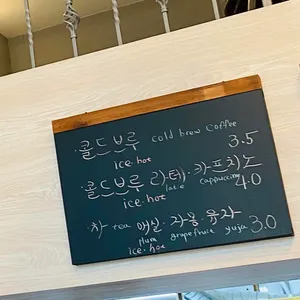 콜드브루 cold brew coffee 3.5
ice·hot
·콜드브루 라떼·카프치노 4.0
latte cappuccino
ice·hot
·차 tea 매실·자몽·유자 3.0
Plum grapefruit yuja
ice·hot